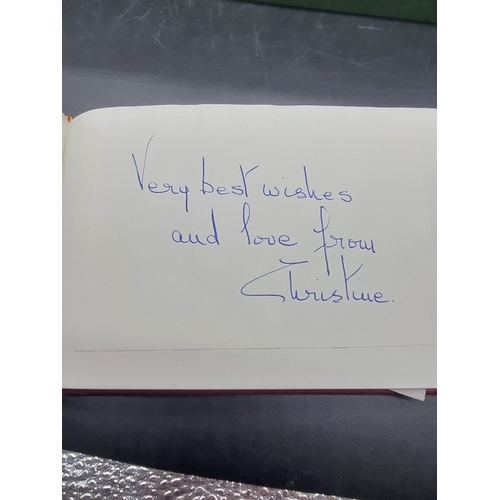 Very best wishes
and love from
Christine.